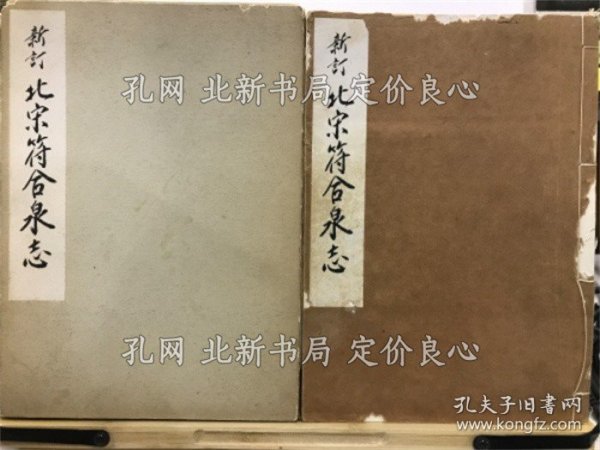 新訂
北宋符合泉志
新訂
北宋符合泉志
孔网 北新书局 定价良心
孔网 北新书局 定价良心
孔夫子旧书网
www.kongfz.com